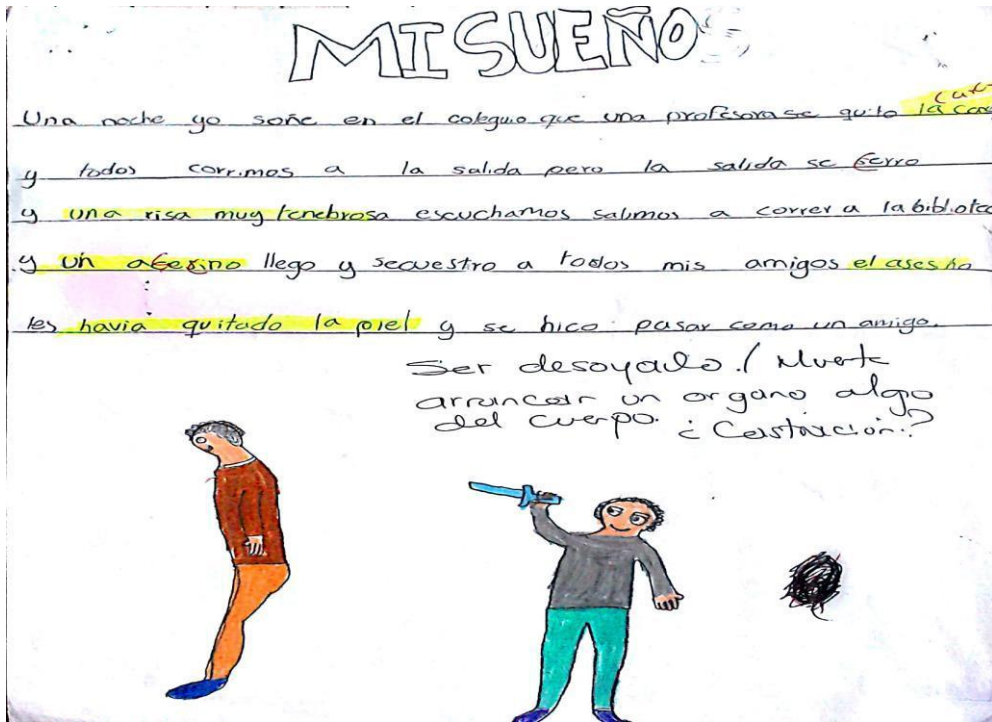 MI SUEÑO
Una noche yo soñe en el coleguio que una profesora se quito la cara
y todos corrimos a la salida pero la salida se serro
y una risa muy tenebrosa escuchamos salimos a correr a la bibliotec
y un acerino llego y secuestro a todos mis amigos el asesino
les havia quitado la piel y se hico pasar como un amigo.
Ser desoyado. / Muerte
arrancar un organo algo
del cuerpo. ¿Castración?